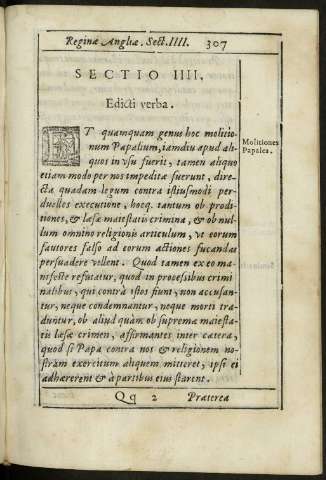 Reginæ Angliæ. Sect. IIII. 307
SECTIO IIII.
Edicti verba.
ET quamquam genus hoc molitio-
num Papalium, iamdiu apud ali-
quos in vsu fuerit, tamen aliquo
etiam modo per nos impeditæ fuerunt, dire-
cta quadam legum contra istiusmodi per-
duelles executione, hocq. tantum ob prodi-
tiones, & læsæ maiestatis crimina, & ob nul-
lum omnino religionis articulum, vt eorum
fautores falso ad eorum actiones fucandas
persuadere vellent. Quod tamen ex eo ma-
nifeste refutatur, quod in processibus crimi
nalibus, qui contrà istos fiunt, non accusan-
tur, neque condemnantur, neque morti tra-
duntur, ob aliud quàm ob supremæ maiesta-
tis læsæ crimen, affirmantes inter cætera,
quod si Papa contra nos & religionem no-
stram exercitum aliquem mitteret, ipsi ei
adhærerent & à partibus eius starent.
Molitiones
Papales.
Qq 2 Præterea